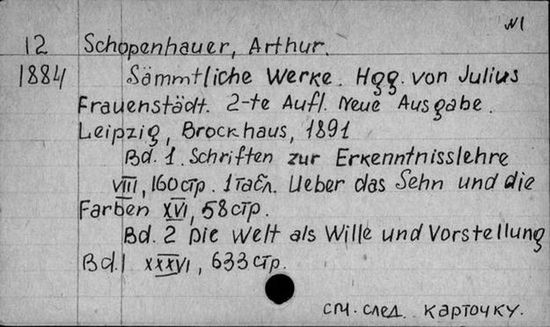 N1
12 Schopenhauer, Arthur.
1884 Sämmtliche Werke. Hgg. von Julius
Frauenstädt. 2-te Aufl. Neue Ausgabe.
Leipzig, Brockhaus, 1891
Bd. 1. Schriften zur Erkenntnisslehre
VIII, 160 стр. 1 табл. Ueber das Sehn und die
Farben XVI, 58 стр.
Bd. 2 Die Welt als Wille und Vorstellung
Bd. I XXXVI, 633 стр.
см. след. карточку.